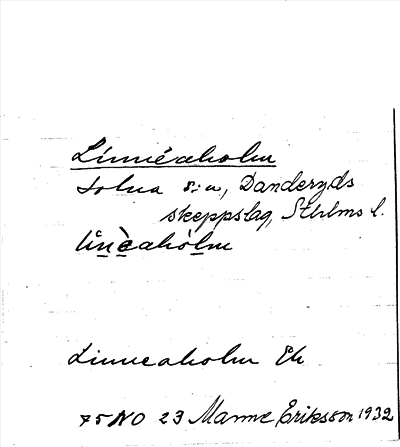 Linnéaholm
Solna s:n, Danderyds
skeppslag, Sthlms l.
linèahólm
Linneaholm Ek
75 NO 23 Manne Eriksson 1932